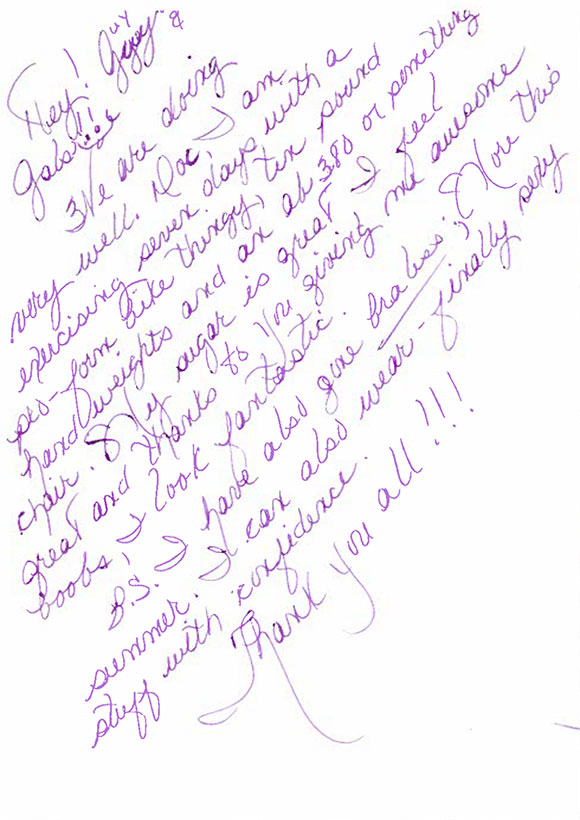 Hey! Guy &
Gabs!!
We are doing
very well. Doc, I am
exercising seven days with a
pro-form bike thingy, ten pound
hand weights and an ab 380 or something
chair. My sugar is great I feel
great and thanks to you giving me awesome
boobs, I look fantastic.
P.S. I have also gone braless! More this
summer. I can also wear - finally sexy
stuff with confidence.
Thank you all!!!